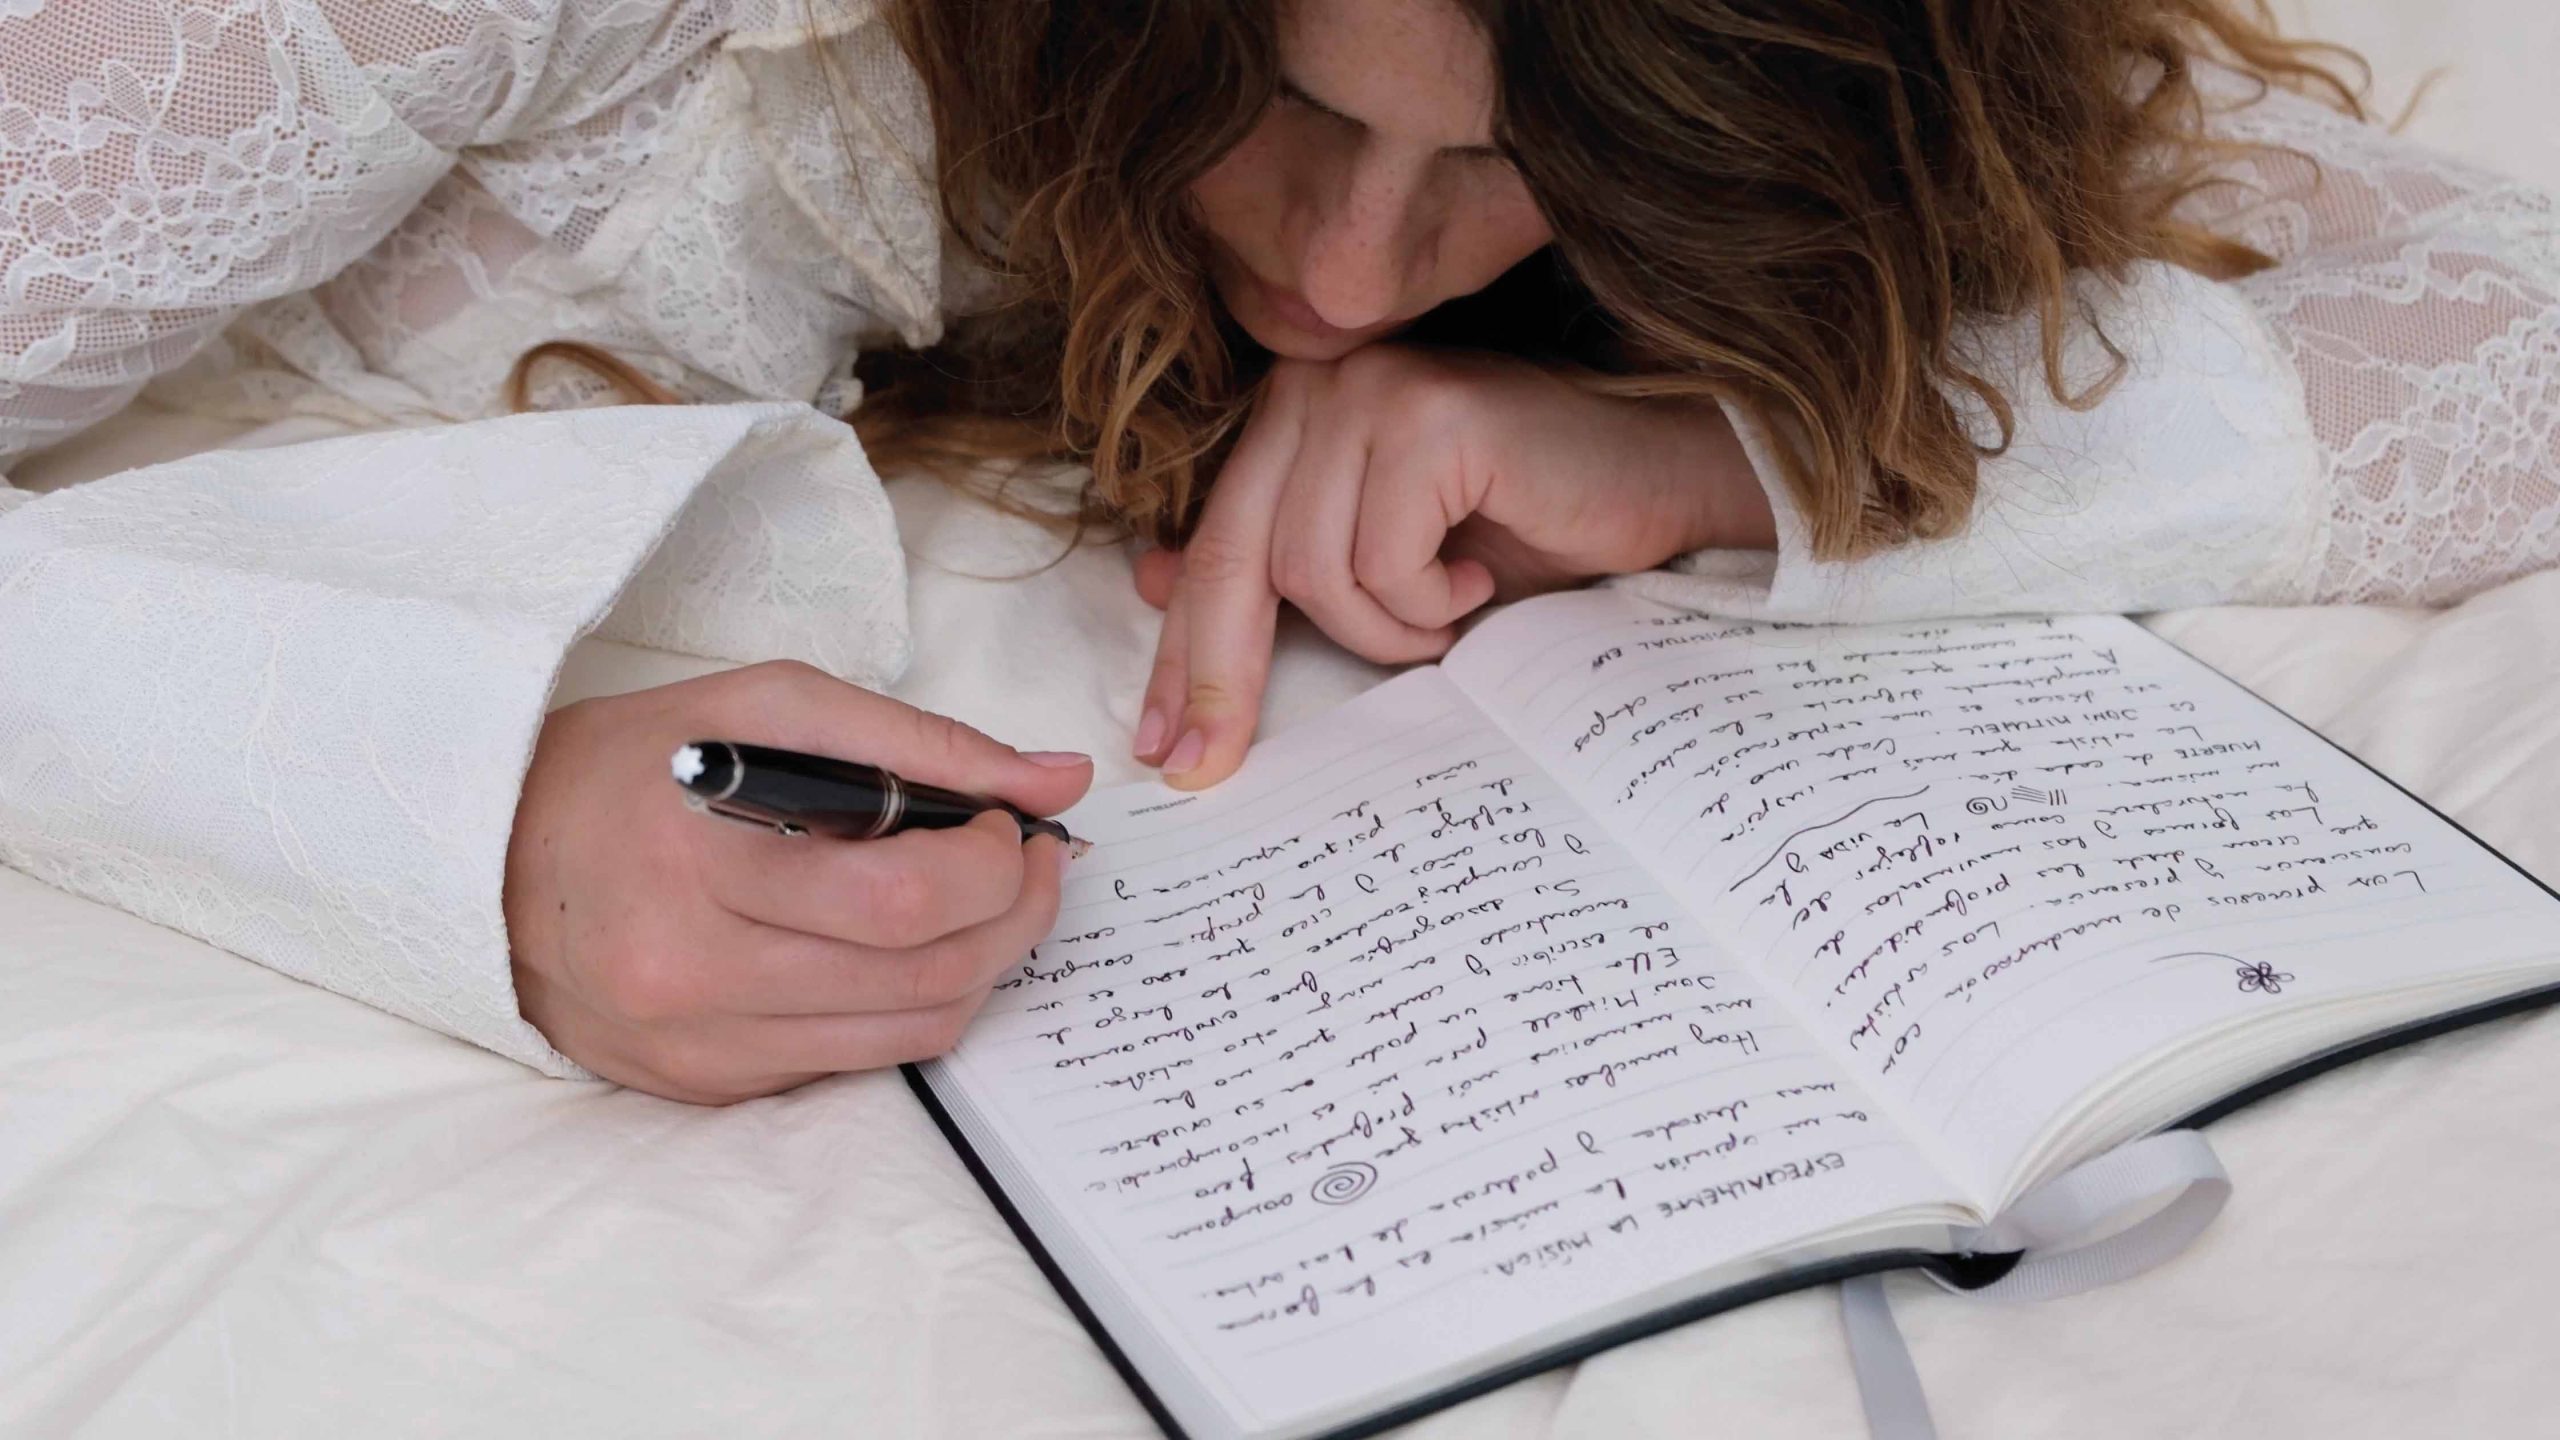 Los procesos de maduración con
consciencia y presencia. Los artistas
que crean desde las profundidades.
Las formas y los movimientos de
la naturaleza como reflejos de
mi misma. LA VIDA y la
MUERTE de cada día.
La artista que más me inspira
es JONI MITCHELL. Cada uno de
sus discos es una exploración
completamente diferente a la anterior.
A medida que veces sus discos
van acompañando las nuevas etapas
de mi vida
ESPIRITUAL EN
ARTE.
ESPECIALMENTE LA MÚSICA.
en mi opinión la música es la forma
mas elevada y poderosa de las artes.
Hay muchos artistas que acompañan
mis memorias más profundas pero
Joni Mitchell para mi es incomparable.
Ella tiene un poder en su crudeza
al escribir y cantar que no he
encontrado en otro artista.
Su discografia fue evolucionando
y complejizandose a lo largo de
los años y creo que eso es un
reflejo de la propia compleja
de la psique humana con
años
MONTBLANC